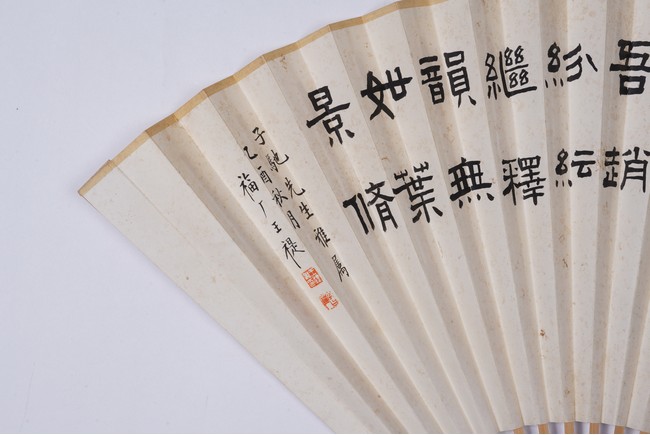 吾趙
紛紜
繼釋
韻無
如葉
景脩
子馳先生雅屬
乙酉秋月
福厂王禔